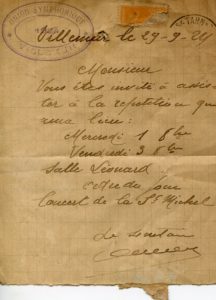 UNION SYMPHONIQUE
Villemur le 29-9-24
Monsieur
Vous êtes invité à assis-
ter à la repetition qui
aura lieu:
Mercredi 1 8bre
Vendredi 3 8bre
Salle Léonard
Ordre du jour
Concert de la St Michel
Le